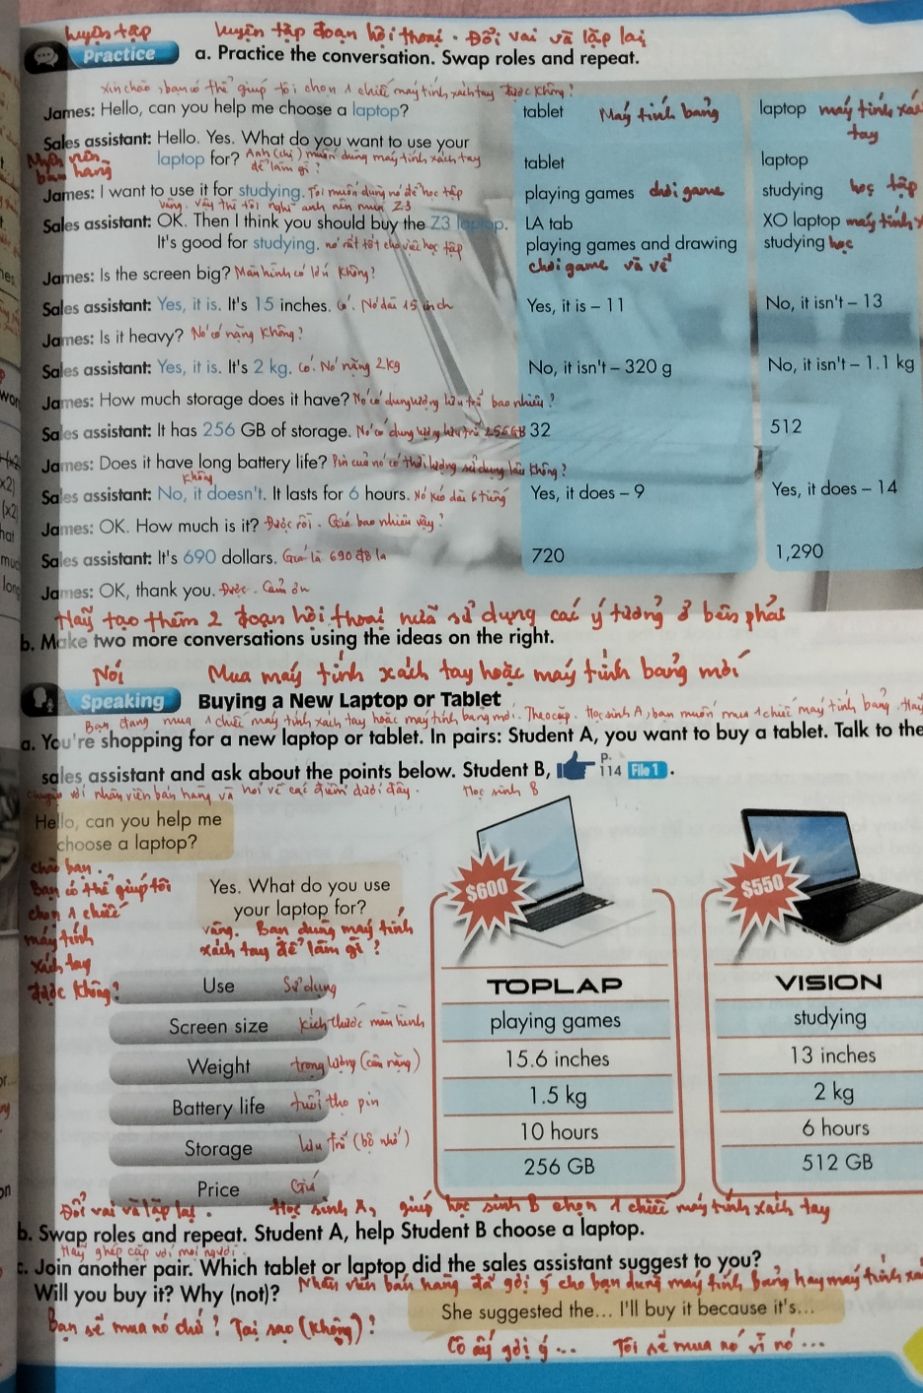 luyện tập
luyện tập đoạn hội thoại. Đổi vai và lặp lại
Practice a. Practice the conversation. Swap roles and repeat.
xin chào, bạn có thể giúp tôi chọn 1 chiếc máy tính xách tay được không?
James: Hello, can you help me choose a laptop?
Sales assistant: Hello. Yes. What do you want to use your
Nhân viên bán hàng
laptop for? Anh (chị) muốn dùng máy tính xách tay
để làm gì?
James: I want to use it for studying. Tôi muốn dùng nó để học tập
vâng. vậy thì tôi nghĩ anh nên mua Z3
Sales assistant: OK. Then I think you should buy the Z3 laptop.
It's good for studying. nó rất tốt cho việc học tập
James: Is the screen big? Màn hình có lớn không?
Sales assistant: Yes, it is. It's 15 inches. có. Nó dài 15 inch
James: Is it heavy? Nó có nặng không?
Sales assistant: Yes, it is. It's 2 kg. có. Nó nặng 2kg
James: How much storage does it have? Nó có dung lượng lưu trữ bao nhiêu?
Sales assistant: It has 256 GB of storage. Nó có dung lượng lưu trữ 256GB
James: Does it have long battery life? Pin của nó có thời lượng sử dụng lâu không?
không
Sales assistant: No, it doesn't. It lasts for 6 hours. Nó kéo dài 6 tiếng
James: OK. How much is it? Được rồi. Giá bao nhiêu vậy?
Sales assistant: It's 690 dollars. Giá là 690 đô la
James: OK, thank you. Được. Cảm ơn
tablet Máy tính bảng
tablet
playing games chơi game
LA tab
playing games and drawing
chơi game và vẽ
Yes, it is – 11
No, it isn't – 320 g
32
Yes, it does – 9
720
laptop máy tính xách
tay
laptop
studying học tập
XO laptop máy tính
studying học
No, it isn't – 13
No, it isn't – 1.1 kg
512
Yes, it does – 14
1,290
Hãy tạo thêm 2 đoạn hội thoại nữa sử dụng các ý tưởng ở bên phải
b. Make two more conversations using the ideas on the right.
Nói Mua máy tính xách tay hoặc máy tính bảng mới
Speaking Buying a New Laptop or Tablet
Bạn đang mua 1 chiếc máy tính xách tay hoặc máy tính bảng mới. Theo cặp. Học sinh A, bạn muốn mua 1 chiếc máy tính bảng. Hãy
a. You're shopping for a new laptop or tablet. In pairs: Student A, you want to buy a tablet. Talk to the
sales assistant and ask about the points below. Student B, p. 114 File 1.
chuyện với nhân viên bán hàng và hỏi về các điểm dưới đây. Học sinh B
Hello, can you help me
choose a laptop?
chào bạn.
Bạn có thể giúp tôi
chọn 1 chiếc
máy tính
xách tay
được không?
Yes. What do you use
your laptop for?
vâng. Bạn dùng máy tính
xách tay để làm gì?
Use Sử dụng
Screen size kích thước màn hình
Weight trọng lượng (cân nặng)
Battery life tuổi thọ pin
Storage lưu trữ (bộ nhớ)
Price Giá
$600
TOPLAP
playing games
15.6 inches
1.5 kg
10 hours
256 GB
$550
VISION
studying
13 inches
2 kg
6 hours
512 GB
Đổi vai và lặp lại. Học sinh A, giúp học sinh B chọn 1 chiếc máy tính xách tay
b. Swap roles and repeat. Student A, help Student B choose a laptop.
Hãy ghép cặp với mọi người.
c. Join another pair. Which tablet or laptop did the sales assistant suggest to you?
Will you buy it? Why (not)? Nhân viên bán hàng đã gợi ý cho bạn dùng máy tính bảng hay máy tính
Bạn sẽ mua nó chứ? Tại sao (không)?
She suggested the... I'll buy it because it's...
Cô ấy gợi ý... Tôi sẽ mua nó vì nó...